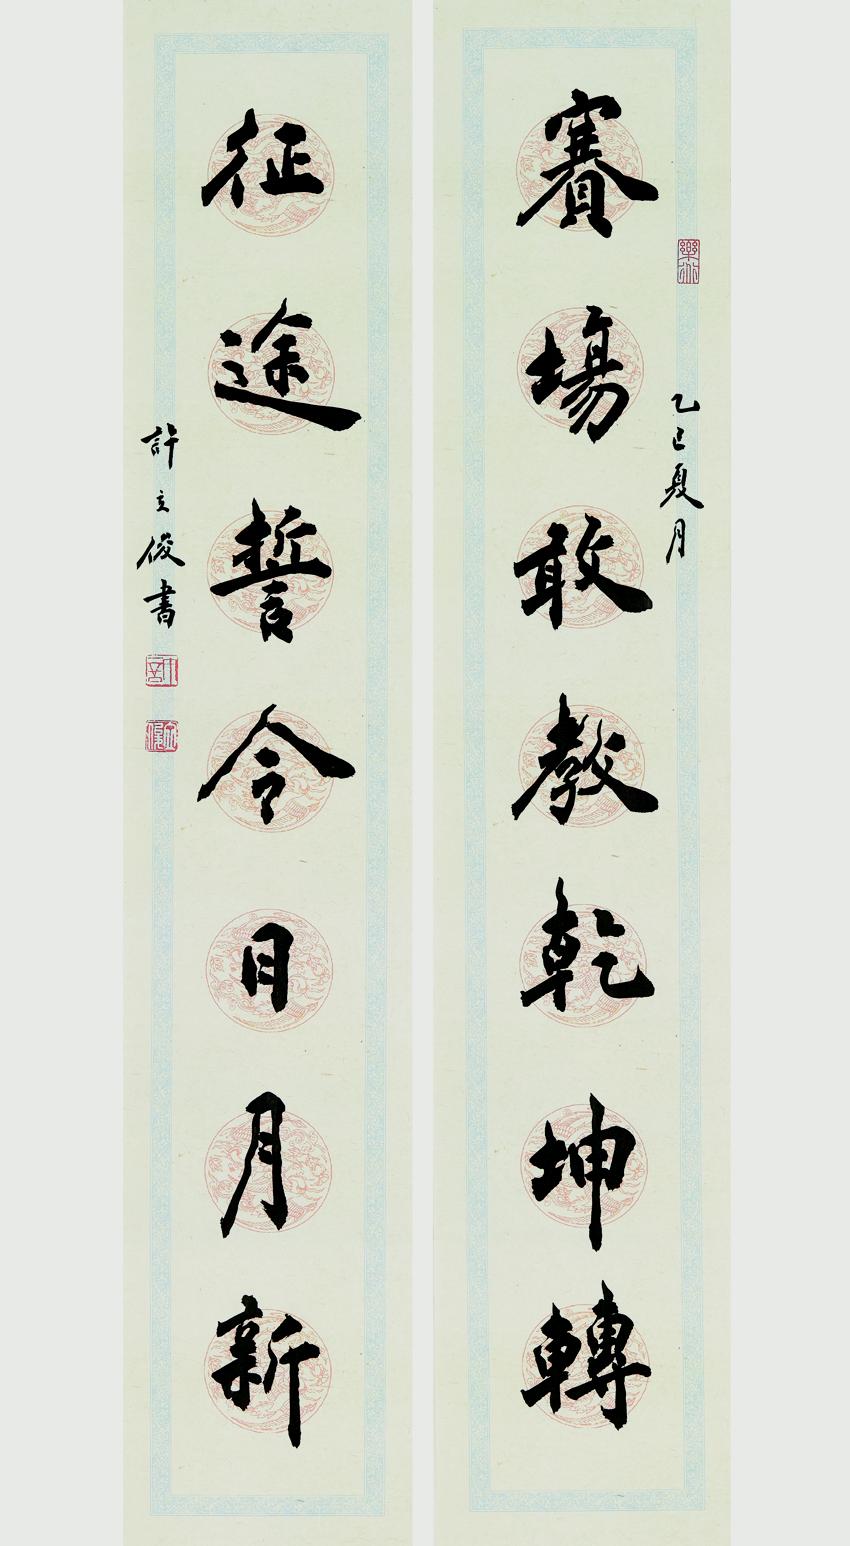 乙巳夏月
賽場敢教乾坤轉
征途誓令日月新
許立俊書